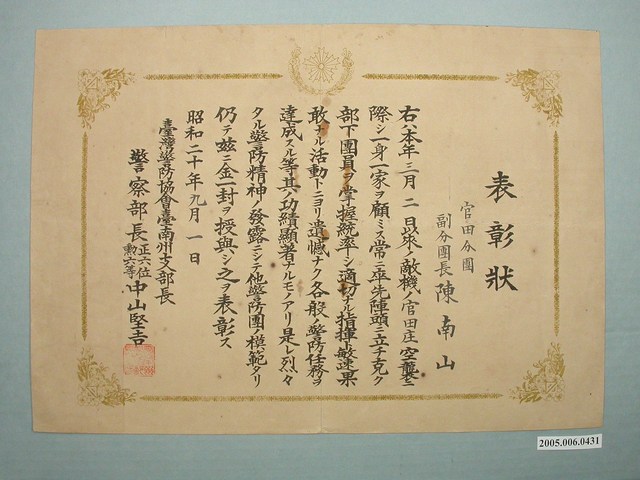 表彰狀
官田分團
副分團長 陳南山
右ハ本年三月二日以來ノ敵機ノ官田庄空襲ニ
際シ一身一家ヲ顧ミス常ニ率先陣頭ニ立チ克ク
部下團員ヲ掌握統率シ適切ナル指揮ト敏速果
敢ナル活動トニヨリ遺憾ナク各般ノ警防任務ヲ
達成スル等其ノ功績顯著ナルモノアリ是レ烈々
タル警防精神ノ發露ニシテ他警防團ノ模範タリ
仍テ玆ニ金一封ヲ授與シ之ヲ表彰ス
昭和二十年九月一日
臺灣警防協會臺南州支部長
警察部長正六位勲六等中山堅吉
2005.006.0431